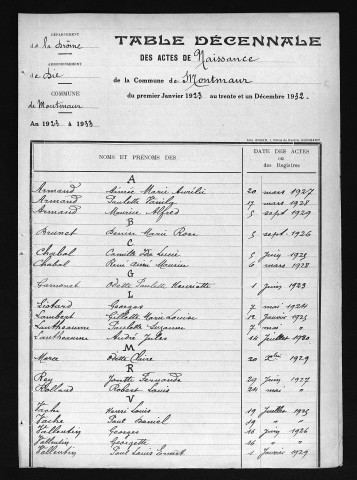 DÉPARTEMENT
de la Drôme
ARRONDISSEMENT
de Die
COMMUNE
de Montmaur
An 1923 à 1933
TABLE DÉCENNALE
DES ACTES DE Naissance
de la Commune de Montmaur
du premier Janvier 1923 au trente et un Décembre 1932.
NOMS ET PRÉNOMS DES
DATE DES ACTES
ou
des Registres
A
Armand Aimée Marie Aurélie 20 mars 1927
Armand Paulette 17 mars 1928
Armand Maurice Alfred 5 sept 1929
B
Brunet Denise Marie Rose 5 sept. 1926
C
Chabal Camille Lucie 5 juin 1925
Chabal René Aimé Maurice 6 mars 1928
G
Gamonet Odette Paulette Henriette 1 juin 1923
L
Liotard Georges 7 mai 1924
Lambert Gillette Marie Louise 12 janvier 1925
Lantheaume Paulette Suzanne 7 mai "
Lantheaume André Jules 14 juillet 1930
M
Morce Odette Claire 20 Xbre 1929
R
Rey Ginette Fernande 29 juin 1927
Rolland Robert Louis 24 mai "
V
Vache Henri Louis 19 juillet 1925
Vache Paul Daniel 19 " "
Vallentin Georges 16 juin 1926
Vallentin Georgette 16 " "
Vallentin Paul Louis Ernest 1 janvier 1929